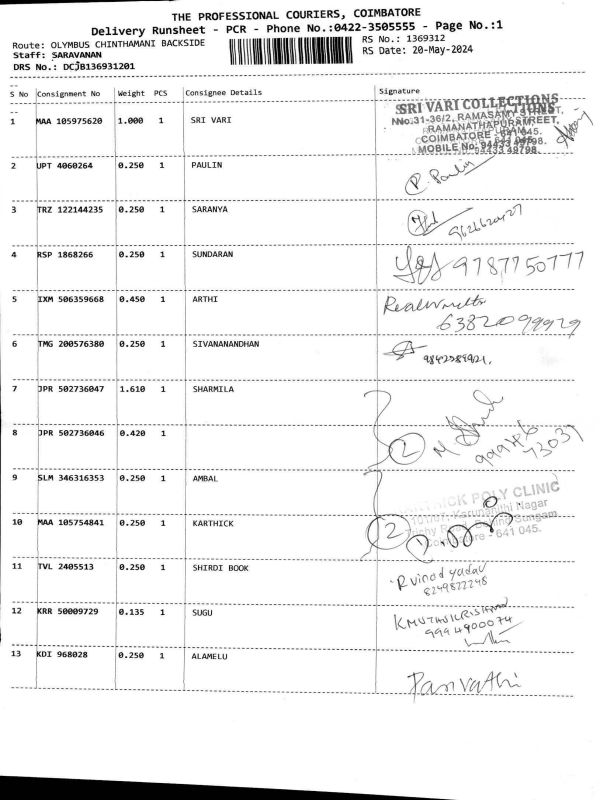 THE PROFESSIONAL COURIERS, COIMBATORE
Delivery Runsheet - PCR - Phone No.:0422-3505555 - Page No.:1
Route: OLYMBUS CHINTHAMANI BACKSIDE
RS No.: 1369312
Staff: SARAVANAN
RS Date: 20-May-2024
DRS No.: DCJB136931201
S No Consignment No Weight PCS Consignee Details Signature
1 MAA 105975620 1.000 1 SRI VARI
SRI VARI COLLECTIONS
No:31-36/2, RAMASAMY STREET,
RAMANATHAPURAM,
COIMBATORE - 641 045.
MOBILE No: 94433 49798.
2 UPT 4060264 0.250 1 PAULIN
P. Paulin
3 TRZ 122144235 0.250 1 SARANYA
4 RSP 1868266 0.250 1 SUNDARAN
9787750777
5 IXM 506359668 0.450 1 ARTHI
6382099929
6 TMG 200576380 0.250 1 SIVANANANDHAN
7 JPR 502736047 1.610 1 SHARMILA
8 JPR 502736046 0.420 1
2 M
99946
73031
9 SLM 346316353 0.250 1 AMBAL
POLY CLINIC
10 MAA 105754841 0.250 1 KARTHICK
2
641 045.
11 TVL 2405513 0.250 1 SHIRDI BOOK
R vinod yadav
8249822248
12 KRR 50009729 0.135 1 SUGU
9994900074
13 KDI 968028 0.250 1 ALAMELU
Parvathi